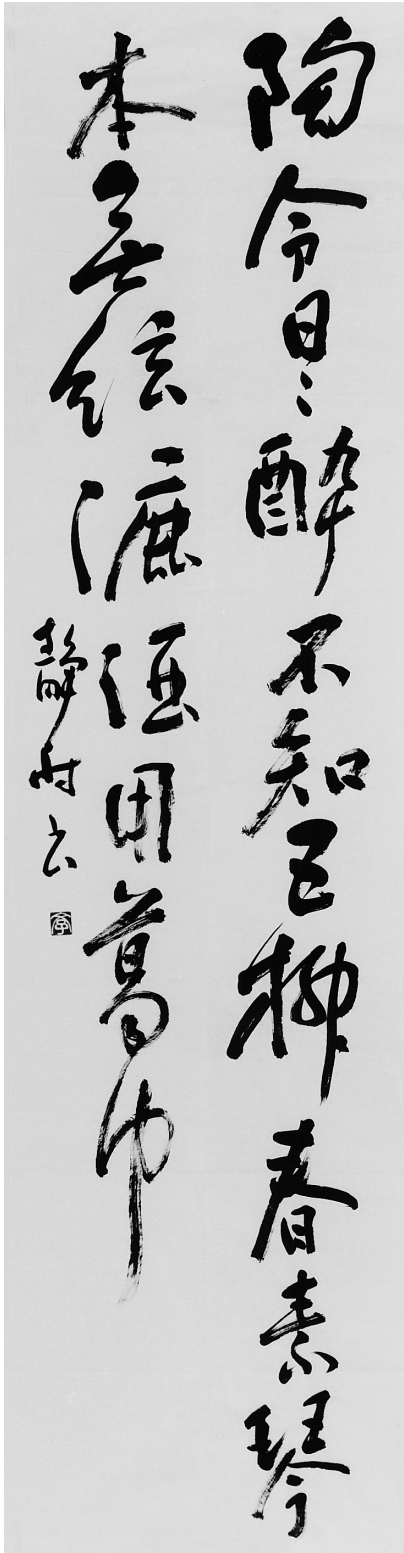 陶令日〻醉不知五柳春素琴
本無弦漉酒用葛巾
靜村書